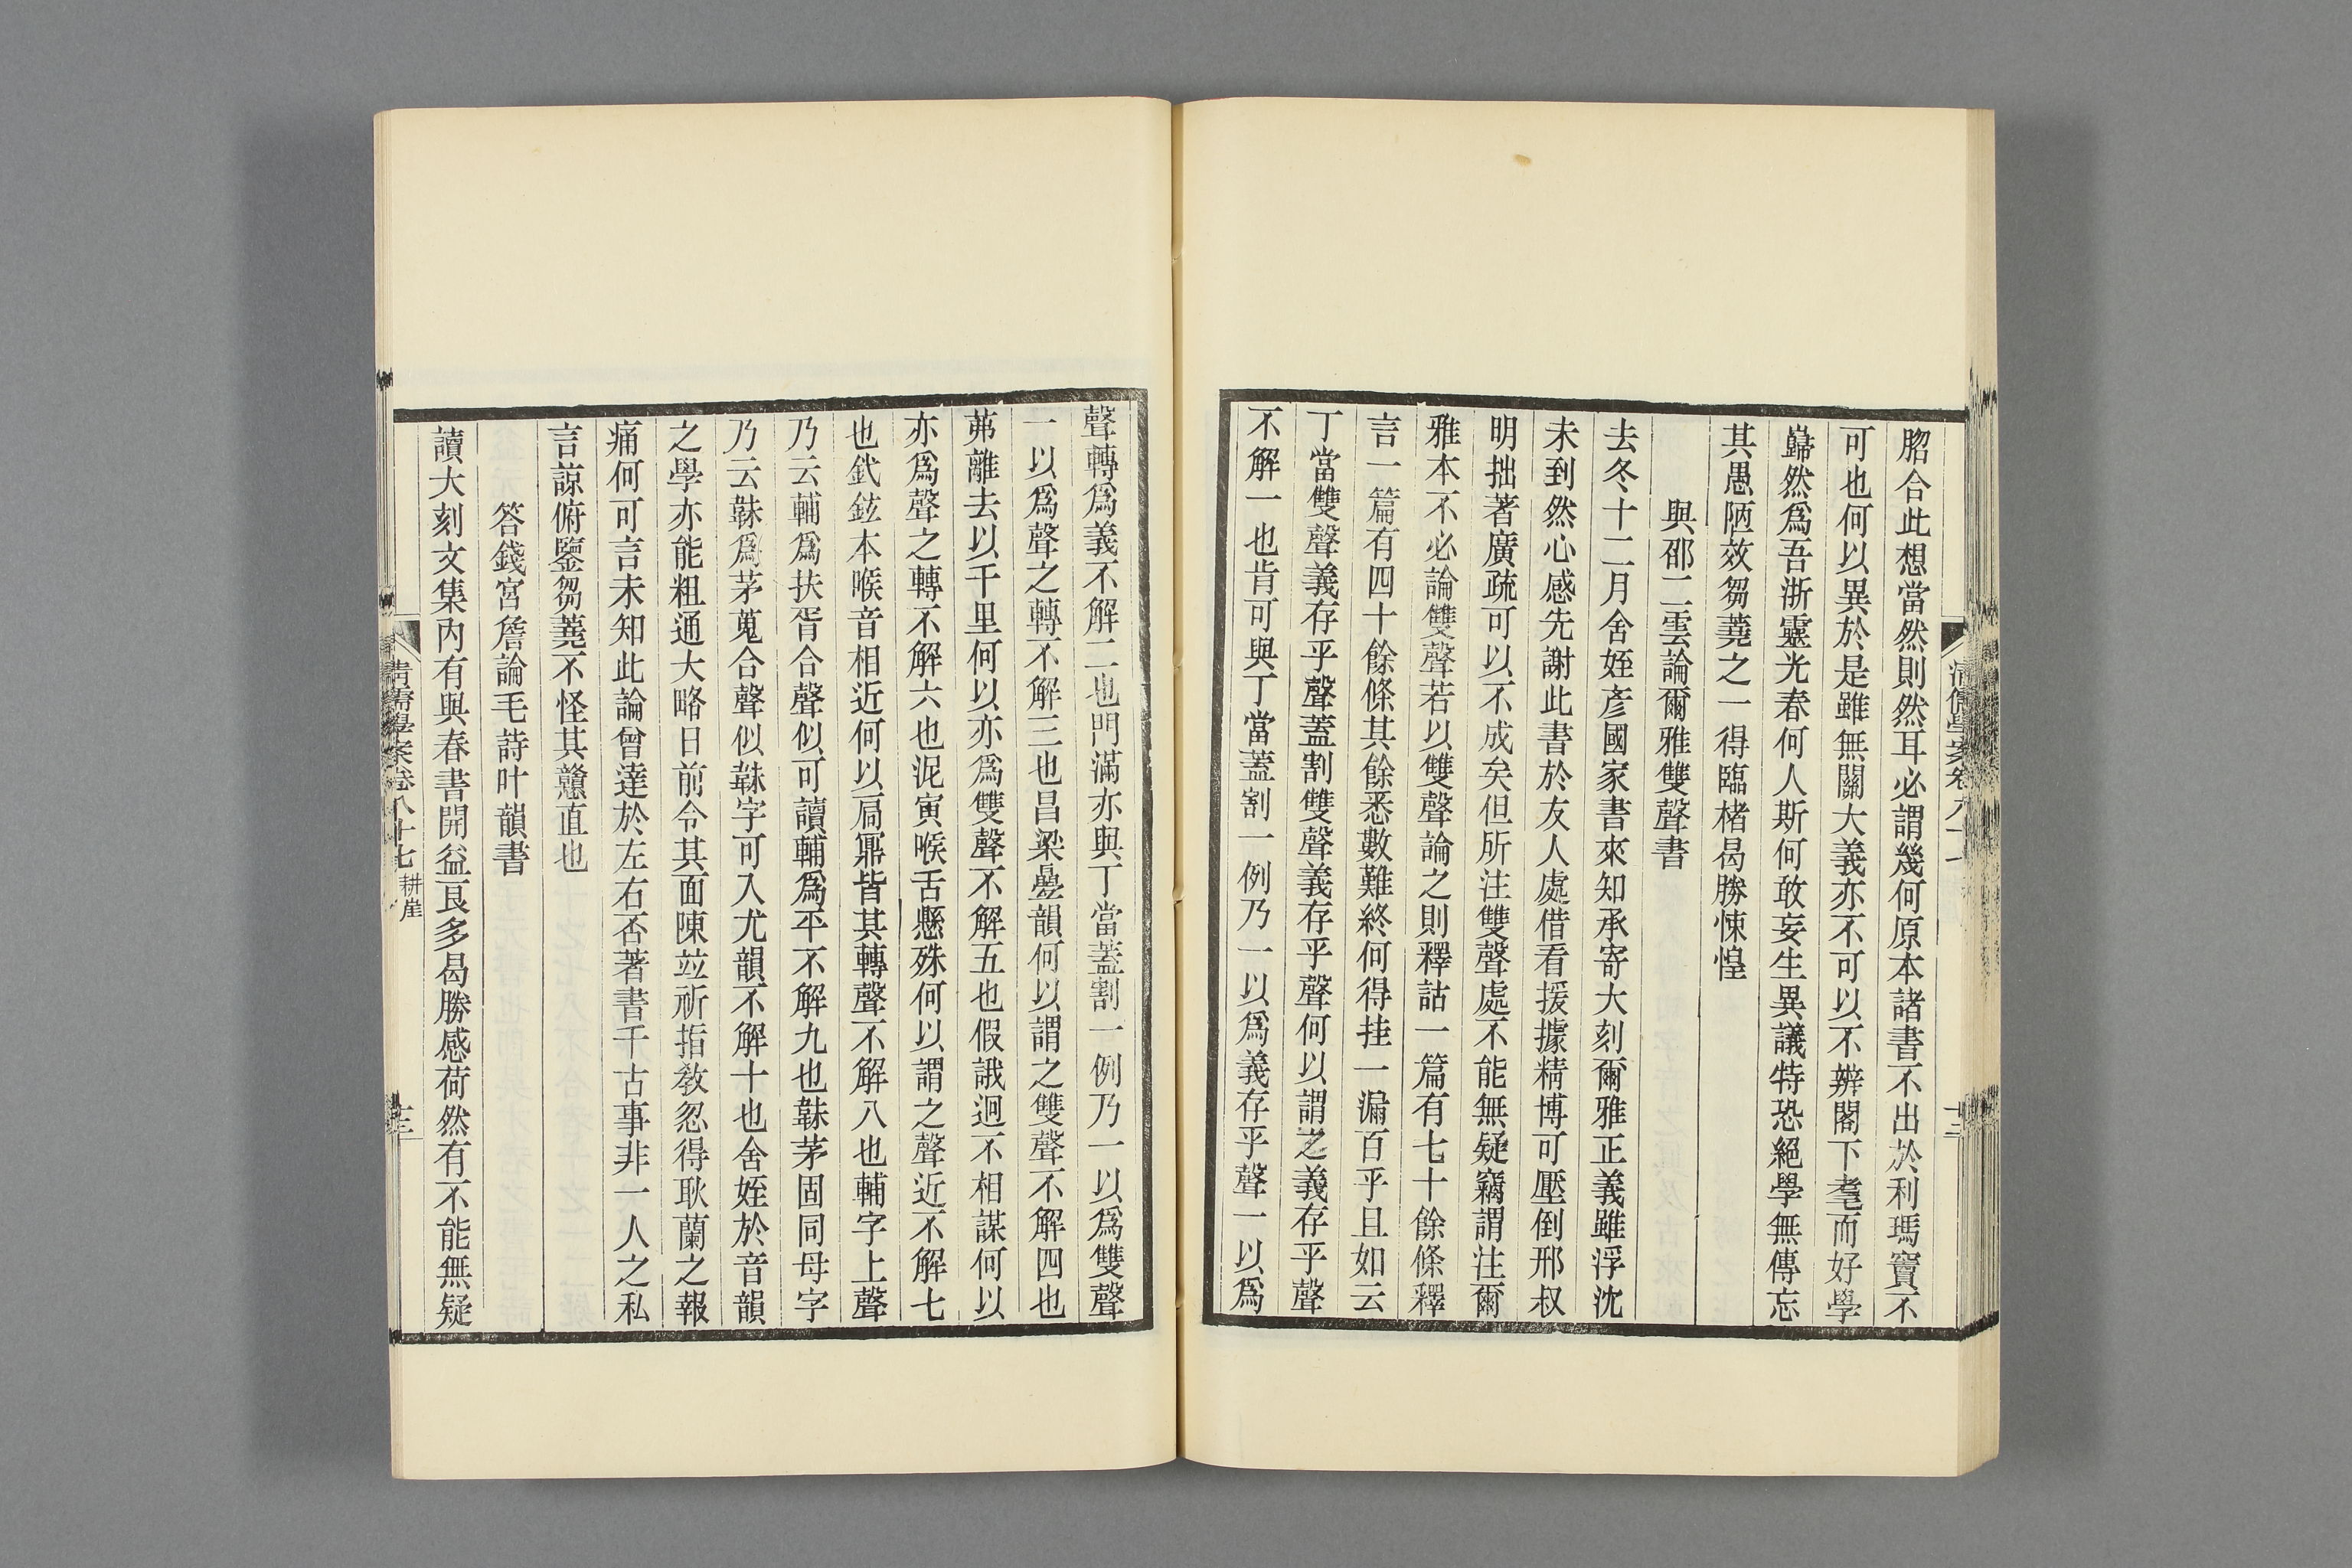 脗合此想當然則然耳必謂幾何原本諸書不出於利瑪竇不
可也何以異於是雖無關大義亦不可以不辨閣下耄而好學
巋然爲吾浙靈光春何人斯何敢妄生異議特恐絕學無傳忘
其愚陋效芻蕘之一得臨楮曷勝悚惶
與邵二雲論爾雅雙聲書
去冬十二月舍姪彥國家書來知承寄大刻爾雅正義雖浮沈
未到然心感先謝此書於友人處借看援據精博可壓倒邢叔
明拙著廣疏可以不成矣但所注雙聲處不能無疑竊謂注爾
雅本不必論雙聲若以雙聲論之則釋詁一篇有七十餘條釋
言一篇有四十餘條其餘悉數難終何得挂一漏百乎且如云
丁當雙聲義存乎聲蓋割雙聲義存乎聲何以謂之義存乎聲
不解一也肯可與丁當蓋割一例乃一以爲義存乎聲一以爲
聲轉爲義不解二也門滿亦與丁當蓋割一例乃一以爲雙聲
一以爲聲之轉不解三也昌梁曡韻何以謂之雙聲不解四也
茀離去以千里何以亦爲雙聲不解五也假誐迥不相謀何以
亦爲聲之轉不解六也泥寅喉舌懸殊何以謂之聲近不解七
也釴鉉本喉音相近何以扃鼏皆其轉聲不解八也輔字上聲
乃云輔爲扶胥合聲似可讀輔爲平不解九也韎茅固同母字
乃云韎爲茅蒐合聲似韎字可入尤韻不解十也舍姪於音韻
之學亦能粗通大略日前令其面陳竝祈指敎忽得耿蘭之報
痛何可言未知此論曾達於左右否著書千古事非一人之私
言諒俯鑒芻蕘不怪其戇直也
答錢宮詹論毛詩叶韻書
讀大刻文集內有與春書開益良多曷勝感荷然有不能無疑
清儒學案卷八十七 耕崖
十三